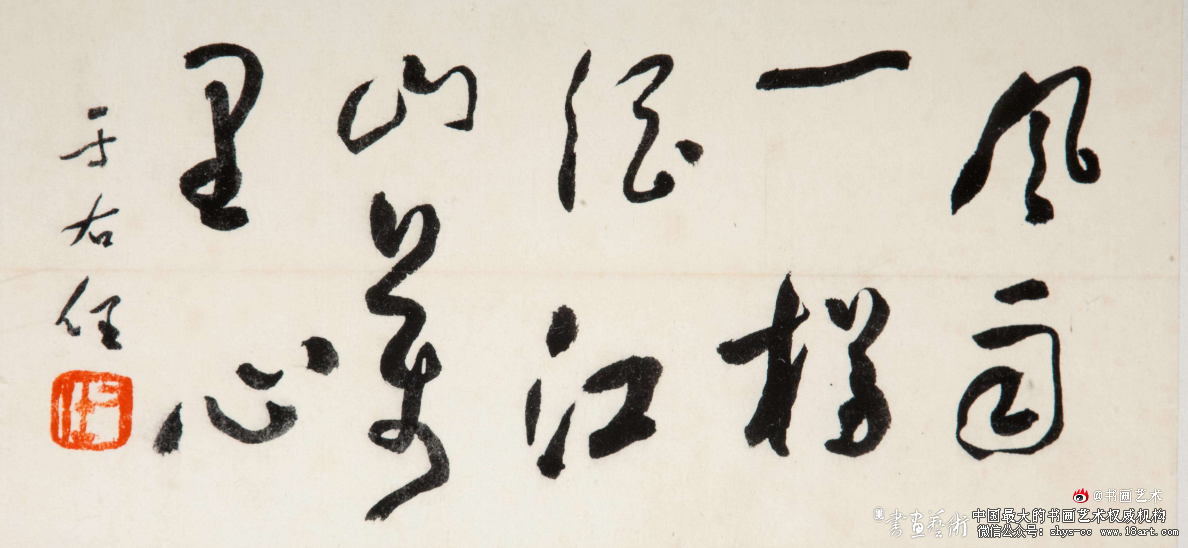 風雨
一樽
酒江
山萬
里心
于右任
@书画艺术
書畫藝術
中国最大的书画艺术权威机构
微信公众号: shys-cc www.18art.com